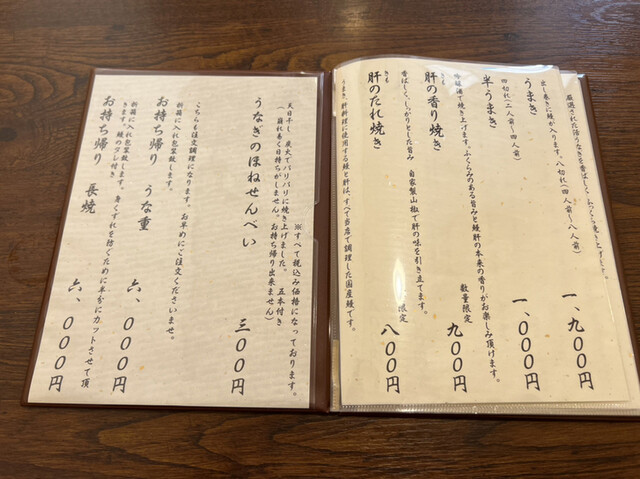 厳選された活うなぎを香ばしく、ふっくら焼き上げます。
出し巻きに鰻が入ります。八切れ(四人前〜八人前)
うまき 一、九〇〇円
四切れ(二人前〜四人前)
半うまき 一、〇〇〇円
吟醸酒で焼き上げます。ふくらみのある旨みと鰻肝の本来の香りがお楽しみ頂けます。
肝の香り焼き 数量限定 九〇〇円
きも
香ばしく、しっかりとした旨み 自家製山椒で肝の味を引き立てます。
肝のたれ焼き 限定 八〇〇円
きも
うまき、肝料理に使用する鰻と肝は、すべて当店で調理した国産鰻です。
※すべて税込み価格になっております。
天日干し、炭火でパリパリに焼き上げました。 五本付き
(崩れ易く日持ちがしません。お持ち帰り出来ません)
うなぎのほねせんべい 三〇〇円
こちらも注文調理になります。お早めにご注文くださいませ。
折箱に入れ包装致します。
お持ち帰り うな重 六、〇〇〇円
折箱に入れ包装致します。身くずれを防ぐために半分にカットさせて頂
きます。鰻のタレ付き
お持ち帰り 長焼 六、〇〇〇円